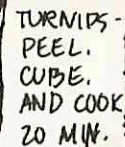 TURNIPS-
PEEL.
CUBE.
AND COOK
20 MIN.